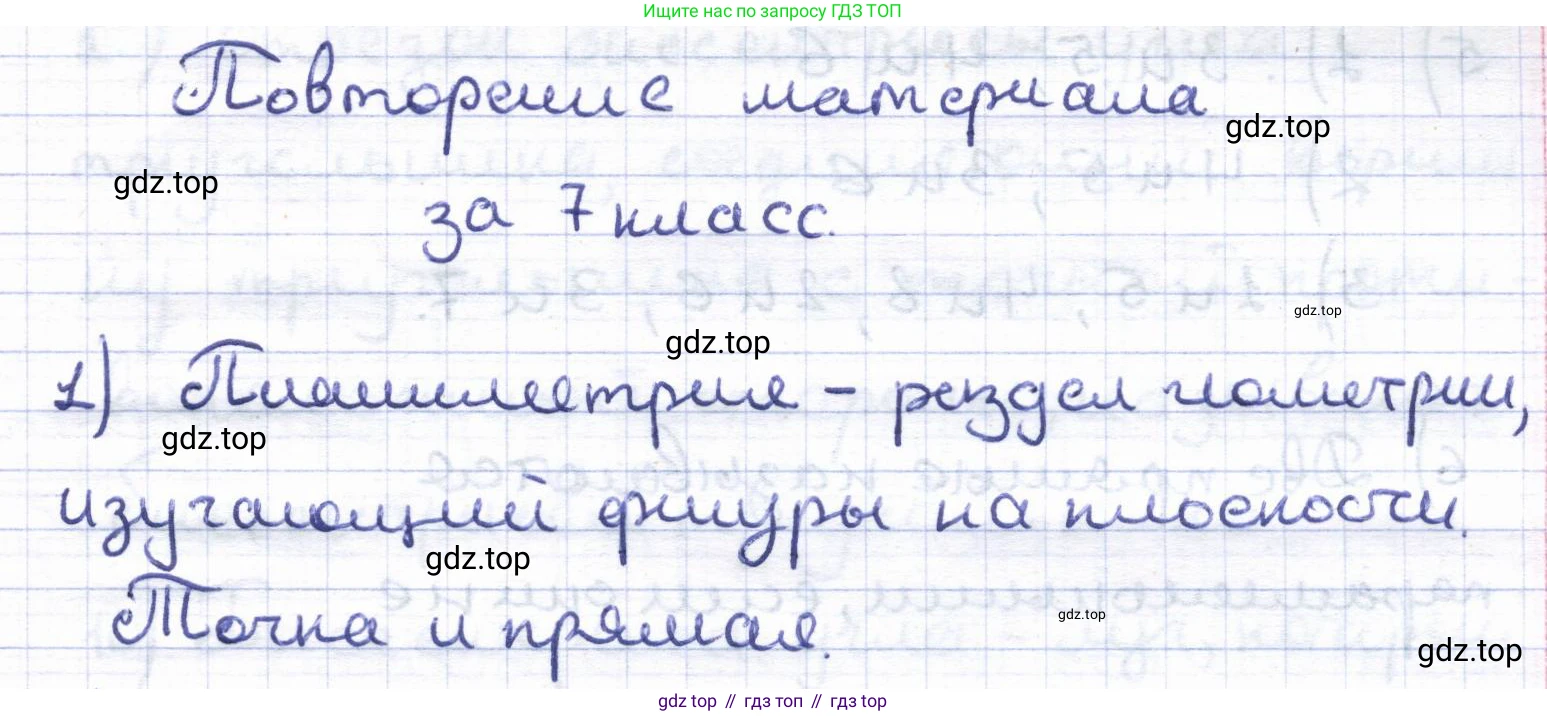 Ищите нас по запросу ГДЗ ТОП
Повторение материала
gdz.top
gdz.top
за 7 класс.
gdz.top
gdz.top
1) Планиметрия – раздел геометрии,
gdz.top
изучающий фигуры на плоскости.
gdz.top
Точка и прямая.
gdz.top
gdz.top
gdz top // гдз топ // гдз top